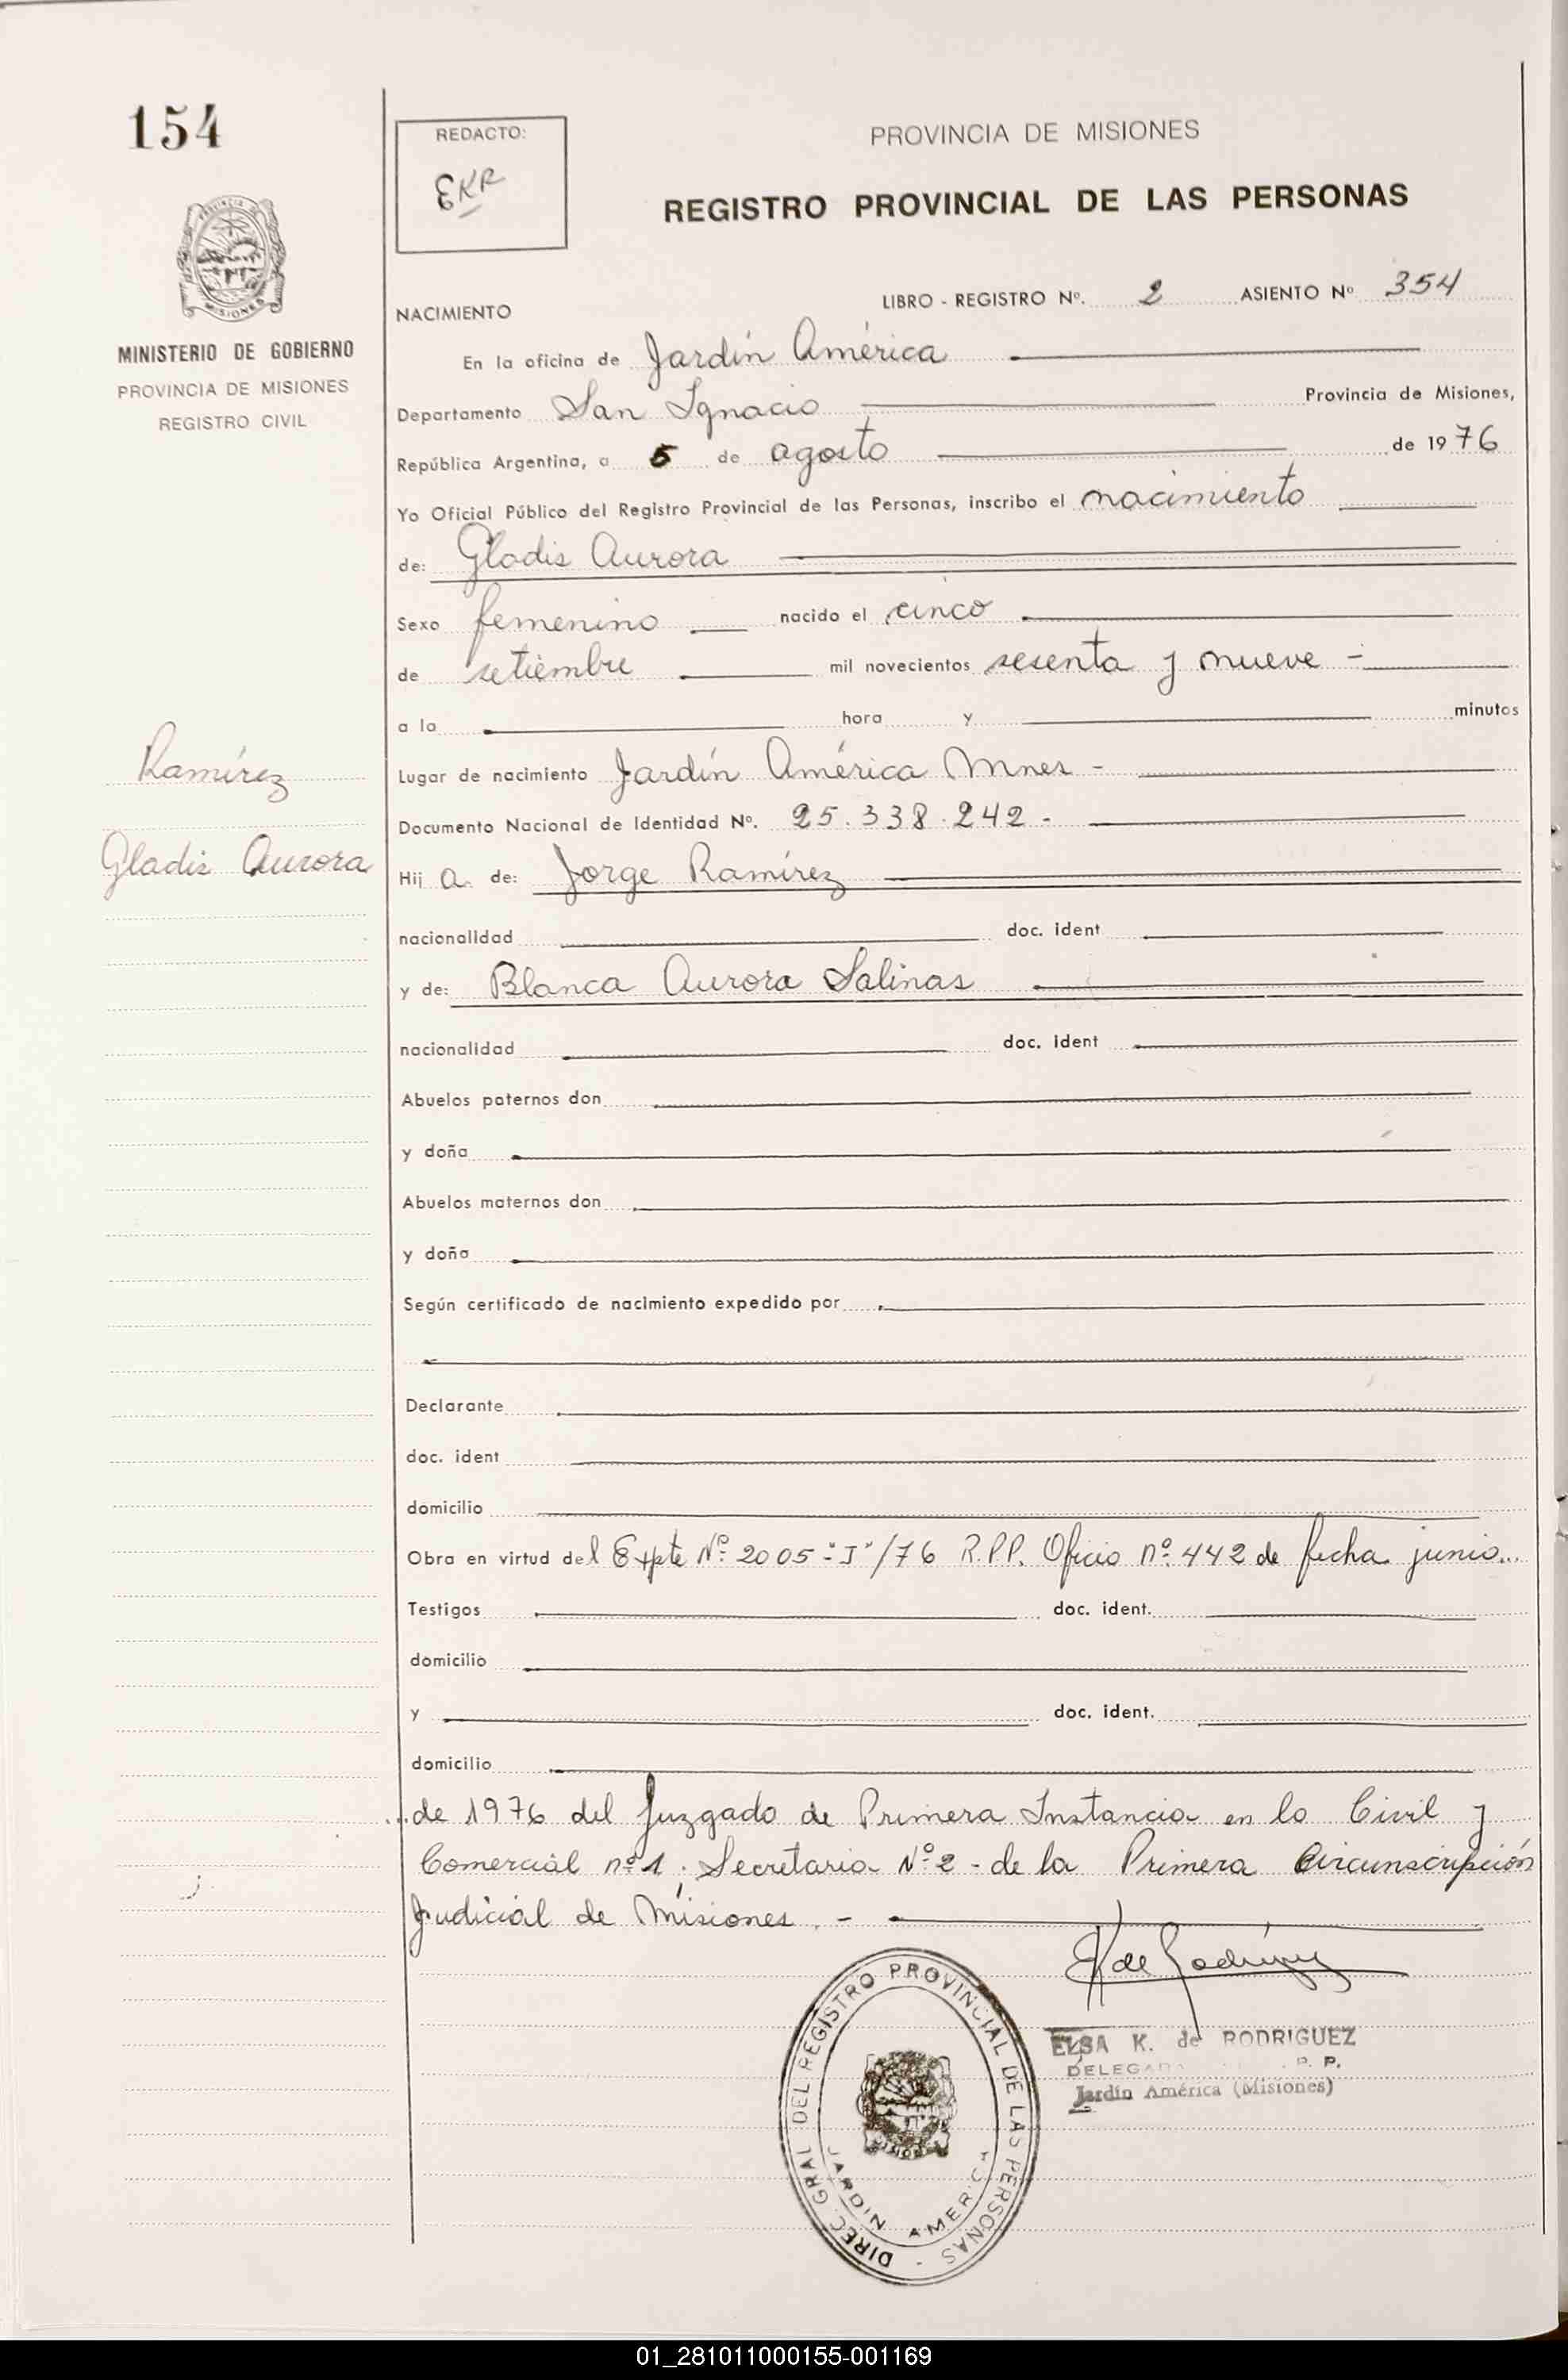 154
REDACTO:
EKR
PROVINCIA DE MISIONES
REGISTRO PROVINCIAL DE LAS PERSONAS
MINISTERIO DE GOBIERNO
PROVINCIA DE MISIONES
REGISTRO CIVIL
NACIMIENTO
LIBRO - REGISTRO Nº. 2 ASIENTO Nº 354
En la oficina de Jardín América
Departamento San Ignacio Provincia de Misiones,
República Argentina, a 5 de agosto de 1976
Yo Oficial Público del Registro Provincial de las Personas, inscribo el nacimiento
de: Gladis Aurora
Sexo femenino nacido el cinco
de setiembre mil novecientos sesenta y nueve -
a la hora y minutos
Ramírez
Gladis Aurora
Lugar de nacimiento Jardín América Mnes -
Documento Nacional de Identidad Nº. 25.338.242 -
Hij a de: Jorge Ramírez
nacionalidad doc. ident
y de: Blanca Aurora Salinas
nacionalidad doc. ident
Abuelos paternos don
y doña
Abuelos maternos don
y doña
Según certificado de nacimiento expedido por
Declarante
doc. ident
domicilio
Obra en virtud del Expte Nº 2005-"J"/76 R.P.P. Oficio nº 442 de fecha junio...
Testigos doc. ident.
domicilio
y doc. ident.
domicilio
...de 1976 del Juzgado de Primera Instancia en lo Civil y
Comercial nº 1, Secretaria Nº 2 - de la Primera Circunscripción
Judicial de Misiones. -
EK de Rodríguez
ELSA K. de RODRIGUEZ
DELEGADA P. P.
Jardín América (Misiones)
DIREC. GRAL. DEL REGISTRO PROVINCIAL DE LAS PERSONAS -
JARDIN AMERICA
MISIONES
01_281011000155-001169